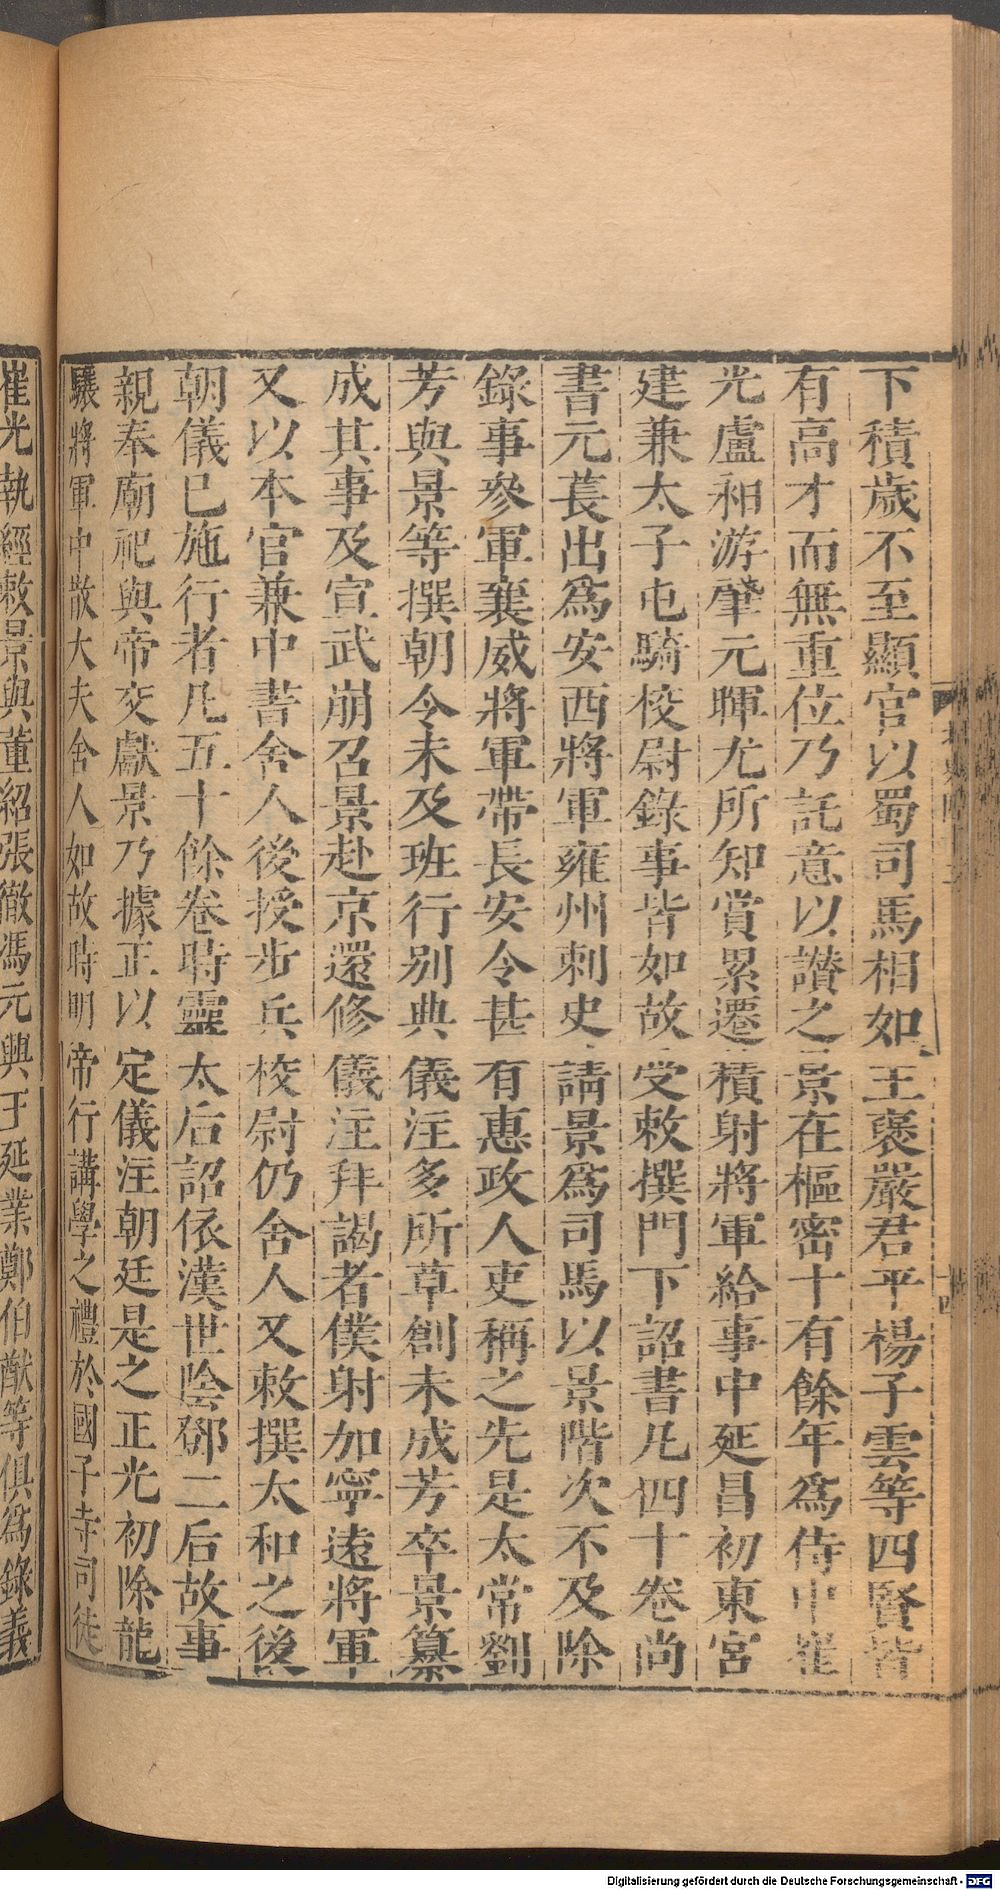 下積歲不至顯官以蜀司馬相如王褒嚴君平楊子雲等四賢皆
有高才而無重位乃託意以讃之景在樞密十有餘年爲侍中崔
光盧昶游肇元暉尤所知賞累遷積射將軍給事中延昌初東宮
建兼太子屯騎校尉錄事皆如故受敕撰門下詔書凡四十卷尚
書元萇出爲安西將軍雍州刺史請景爲司馬以景階次不及除
錄事參軍襄威將軍帶長安令甚有惠政人吏稱之先是太常劉
芳與景等撰朝令未及班行別典儀注多所草創未成芳卒景纂
成其事及宣武崩召景赴京還修儀注拜謁者僕射加寧遠將軍
又以本官兼中書舍人後授步兵校尉仍舍人又敕撰太和之後
朝儀已施行者凡五十餘卷時靈太后詔依漢世陰鄧二后故事
親奉廟祀與帝交獻景乃據正以定儀注朝廷是之正光初除龍
驤將軍中散大夫舍人如故時明帝行講學之禮於國子寺司徒
崔光執經敕景與董紹張徹馮元興王延業鄭伯猷等俱爲錄義
Digitalisierung gefördert durch die Deutsche Forschungsgemeinschaft - DFG